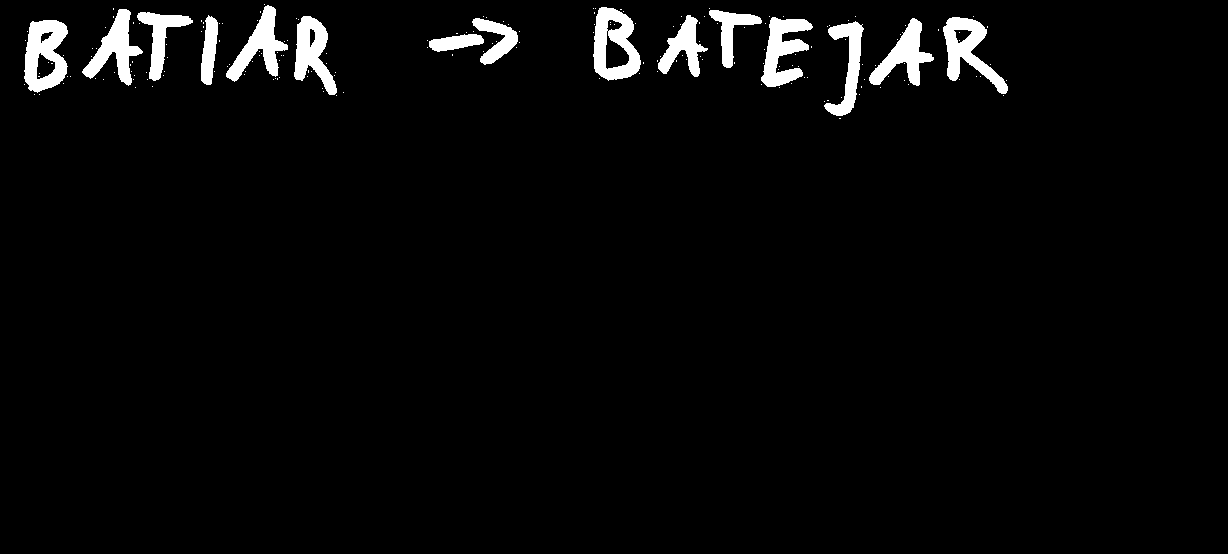 BATIAR → BATEJAR